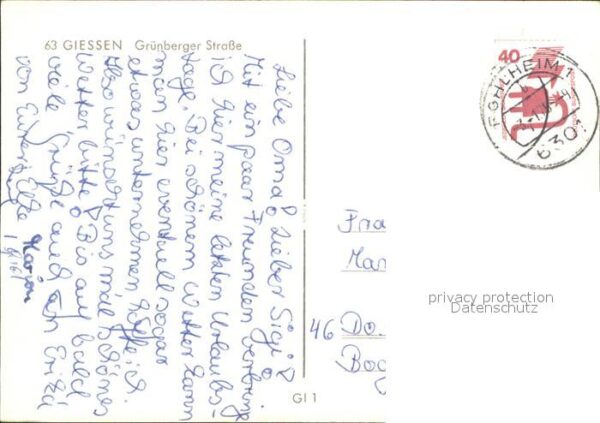 63 GIESSEN Grünberger Straße
Liebe Oma! Lieber Sigi!
Mit ein paar Freunden verbringe
ich hier meine letzten Urlaubs-
tage. Bei schönem Wetter kann
man hier eventuell sogar
etwas unternehmen, hoffe ich.
Also wünscht uns mal schönes
Wetter bitte! Bis auf bald
viele Grüße auch an Erika
von Eurer Elke
Marion
GI 1
40
6301
Fra
Mar
46 Do.
Bog
privacy protection
Datenschutz